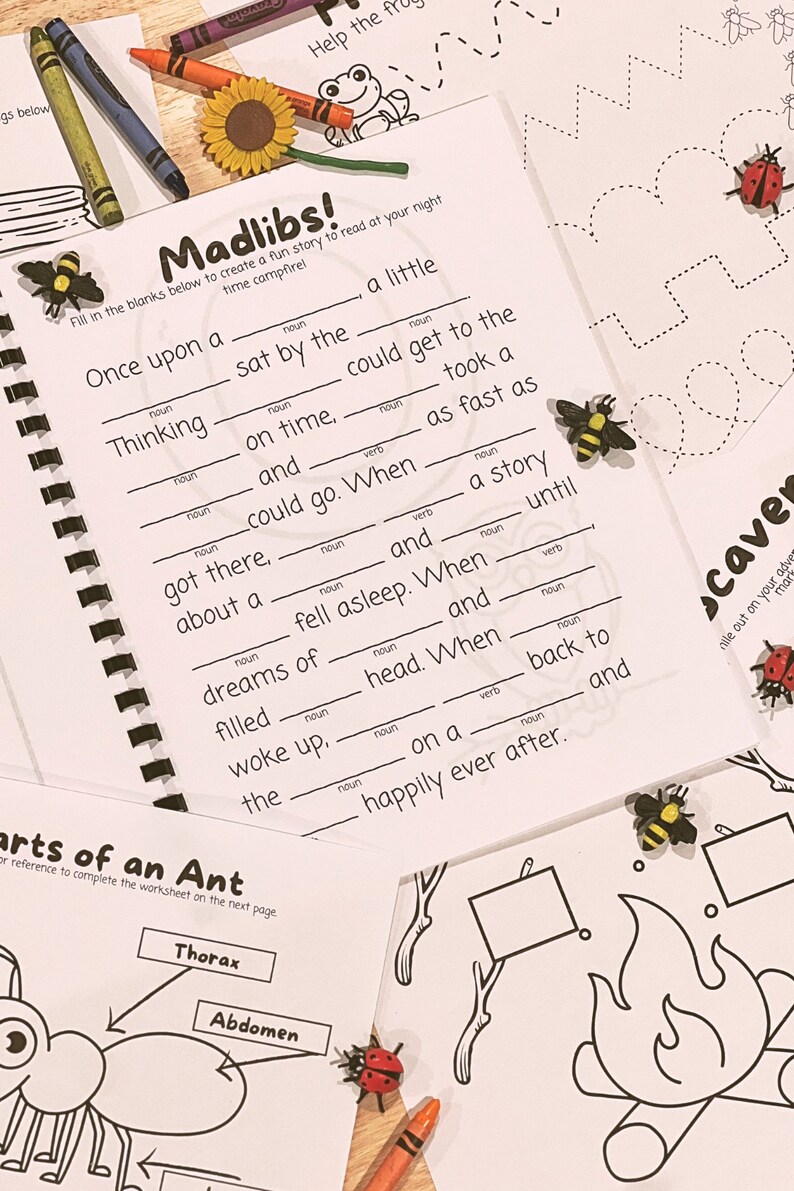 Help the frog
gs below
Madlibs!
Fill in the blanks below to create a fun story to read at your night
time campfire!
Once upon a ________, a little
noun
________ sat by the ________.
noun noun
Thinking ________ could get to the
noun
________ on time, ________ took a
noun noun
________ and ________ as fast as
noun verb
________ could go. When ________
noun noun
got there, ________ ________ a story
noun verb
about a ________ and ________ until
noun noun
________ fell asleep. When ________,
noun verb
dreams of ________ and ________
noun noun
filled ________ head. When ________
noun noun
woke up, ________ ________ back to
noun verb
the ________ on a ________ and
noun noun
________ happily ever after.
caven
hile out on your adve
mark
arts of an Ant
or reference to complete the worksheet on the next page
Thorax
Abdomen